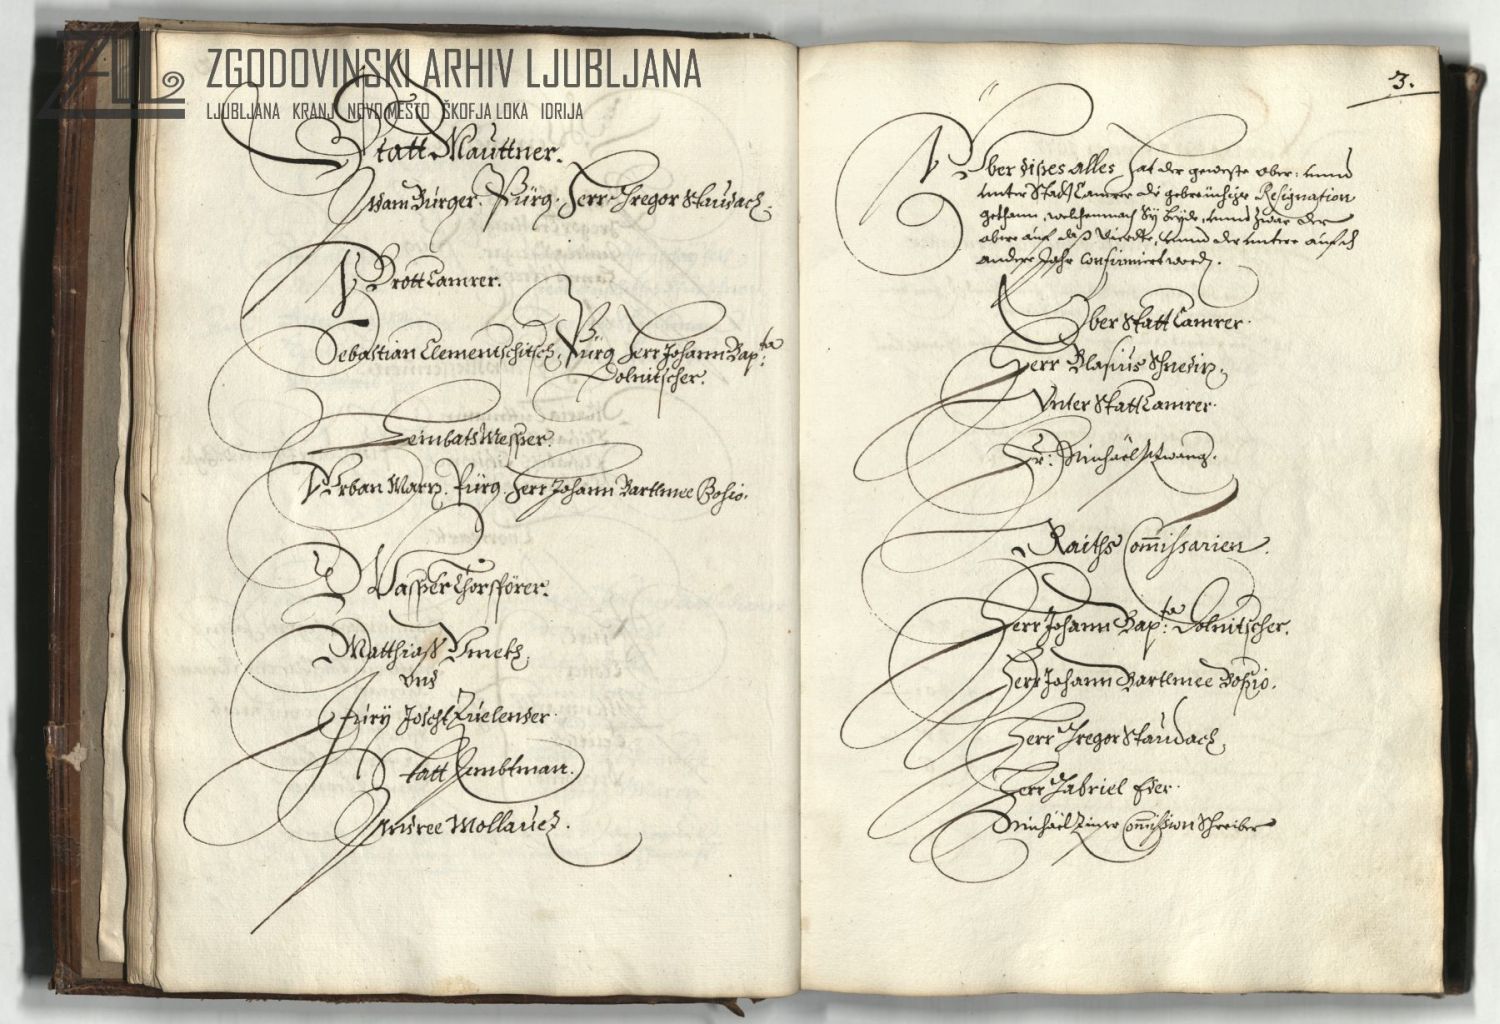 ZGODOVINSKI ARHIV LJUBLJANA
LJUBLJANA KRANJ NOVO MESTO ŠKOFJA LOKA IDRIJA
Statt Mauttner.
Adam Burger. Pürg. Herr Gregor Staudach.
Prott Camrer.
Sebastian Clementschitsch, Pürg Herr Johann Bap:ta
Dolnitscher.
Leinbats Messer.
Urban Marn. Pürg. Herr Johann Bartlmee Bosio.
Wasser Thorspörer.
Matthiaß
vnd
Jury
Statt Hembtman.
Andree Mollauez.
3.
Uber dises alles hat der geweste ober: vnnd
vnter Statt Camrer die gebreuchige Resignation
gethann, welchemnach Sÿ beyde, vnnd zwar der
obere auf daß Vierdte, vnnd der untere auf ds
andere Jahr confirmiert word.
Ober Statt Camrer.
Herr Blasius
Vnter Statt Camrer.
Hr: Michäel
Raiths Commissarien.
Herr Johann Bap:ta Dolnitscher.
Herr Johann Bartlmee Bosio.
Herr Gregor Staudach,
Herr Gabriel Eder.
Michäel Commission Schreiber